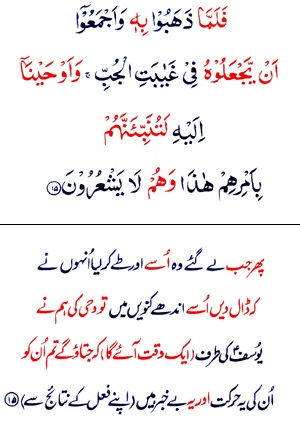 فَلَمَّا ذَهَبُوْا بِهٖ وَاَجْمَعُوْۤا
اَنْ يَّجْعَلُوْهُ فِيْ غَيٰبَتِ الْجُبِّ ۚ وَاَوْحَيْنَاۤ
اِلَيْهِ لَتُنَبِّئَنَّهُمْ
بِاَمْرِهِمْ هٰذَا وَهُمْ لَا يَشْعُرُوْنَ ۝۱۵
پھر جب لے گئے وہ اُسے اور طے کر لیا اُنہوں نے
کہ ڈال دیں اُسے اندھے کنویں میں تو وحی کی ہم نے
یُوسف ؑ کی طرف (ایک وقت آئے گا) کہ جتاؤ گے تم اُن کو
اُن کی یہ حرکت اور یہ بے خبر ہیں (اپنے فعل کے نتائج سے) ﴿۱۵﴾